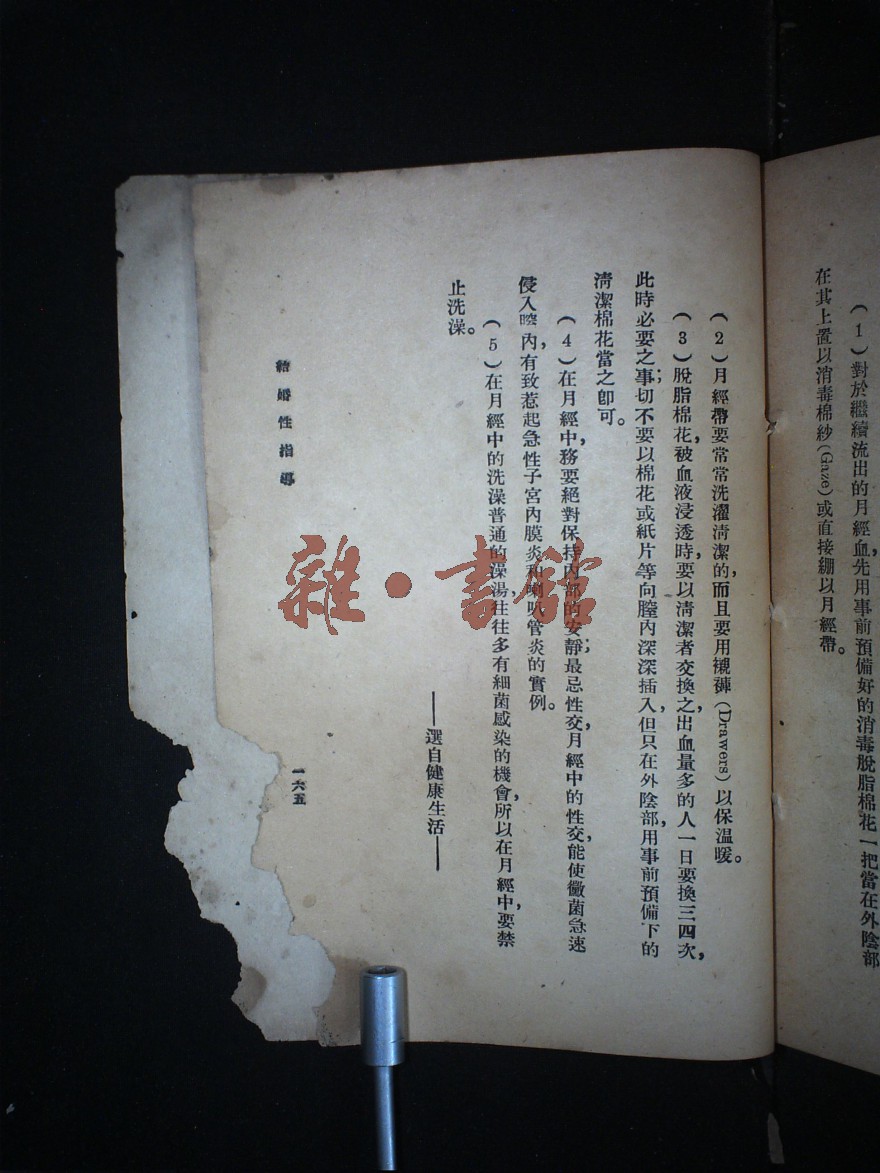 （1）對於繼續流出的月經血，先用事前預備好的消毒脫脂棉花一把當在外陰部
在其上置以消毒棉紗(Gaze)或直接綳以月經帶。
（2）月經帶要常常洗濯清潔的，而且要用襯褲(Drawers)以保温暖。
（3）脫脂棉花，被血液浸透時，要以清潔者交換之，出血量多的人一日要換三四次，
此時必要之事；切不要以棉花或紙片等向膣內深深插入，但只在外陰部，用事前預備下的
清潔棉花當之卽可。
（4）在月經中，務要絕對保持內部的安靜；最忌性交，月經中的性交，能使黴菌急速
侵入膣內，有致惹起急性子宮內膜炎和喇叭管炎的實例。
（5）在月經中的洗澡普通的澡湯，往往多有細菌感染的機會，所以在月經中，要禁
止洗澡。
——選自健康生活——
結婚性指導
一六五
雜·書館